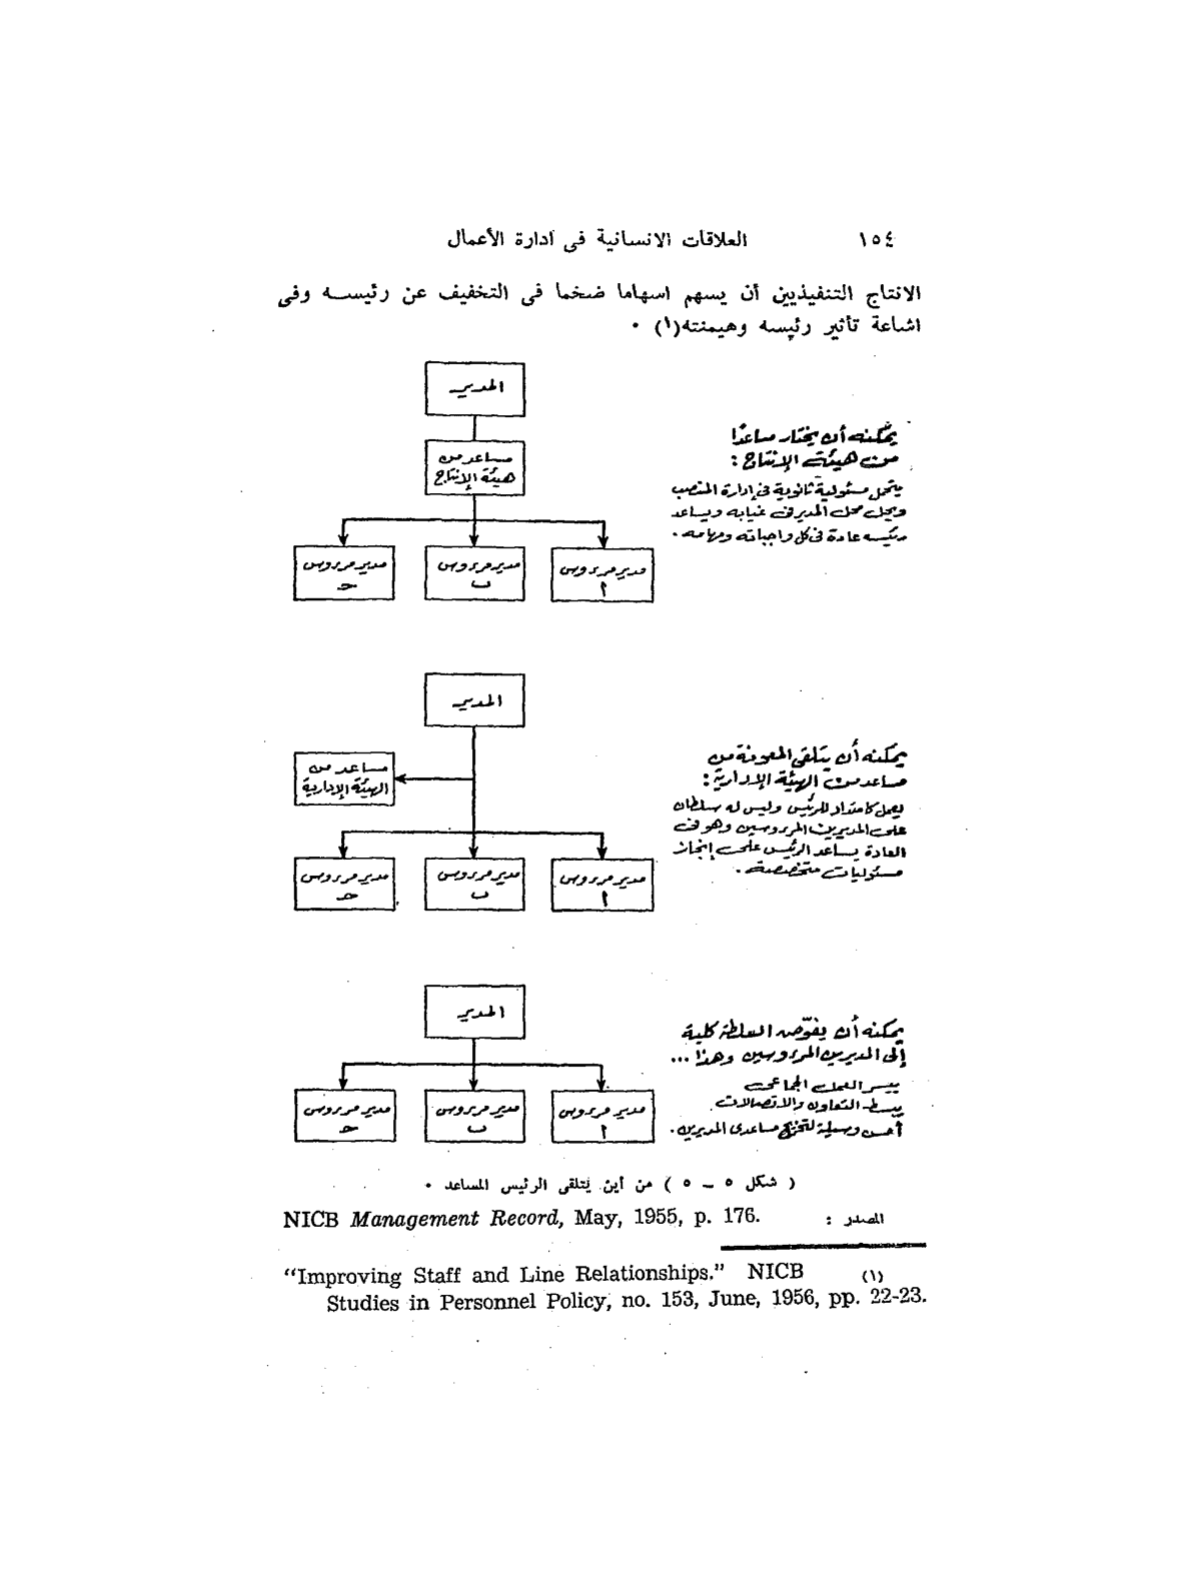 ١٥٤ العلاقات الانسانية فى ادارة الأعمال
الانتاج التنفيذيين أن يسهم اسهاما ضخما فى التخفيف عن رئيسه وفى
اشاعة تأثير رئيسه وهيمنته(١) •
المدير
مساعد من
هيئة الإنتاج
مدير مرءوس
أ
مدير مرءوس
ب
مدير مرءوس
حـ
يمكنه أن يختار مساعدًا
من هيئة الإنتاج:
يتحمل مسئولية ثانوية فى إدارة المنصب
ويحل محل المدير فى غيابه ويساعد
رئيسه عادة فى كل واجباته ومهامه.
المدير
مساعد من
الهيئة الإدارية
مدير مرءوس
أ
مدير مرءوس
ب
مدير مرءوس
حـ
يمكنه أن يتلقى المعونة من
مساعد من الهيئة الإدارية:
يعمل كامتداد للرئيس وليس له سلطان
على المديرين المرءوسين وهو فى
العادة يساعد الرئيس على إنجاز
مسئوليات متخصصة.
المدير
مدير مرءوس
أ
مدير مرءوس
ب
مدير مرءوس
حـ
يمكنه أن يفوّض السلطة كلية
إلى المديرين المرءوسين وهذا ...
ييسر العمل الجماعى
يبسط التعاون والاتصالات.
أحسن وسيلة لتخرج مساعدى المديرين.
( شكل ٥ – ٥ ) من أين يتلقى الرئيس المساعد •
المصدر : NICB Management Record, May, 1955, p. 176.
(١) “Improving Staff and Line Relationships.” NICB
Studies in Personnel Policy, no. 153, June, 1956, pp. 22-23.